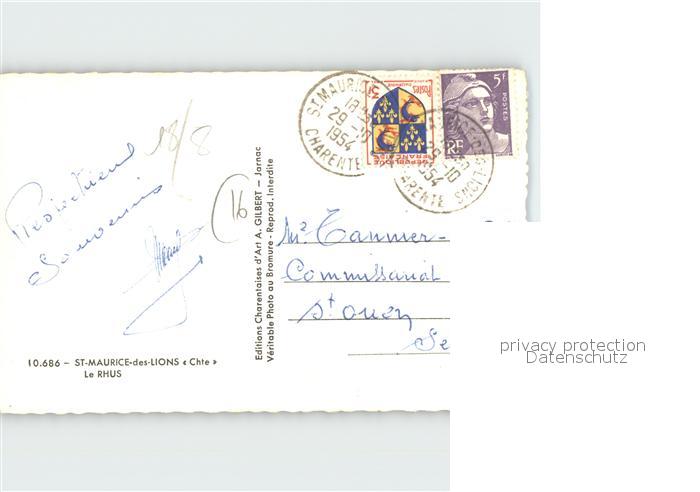 18/8
Respectueux
Souvenir
16
Editions Charentaises d'Art A. GILBERT — Jarnac
Véritable Photo au Bromure - Reprod. Interdite
10.686 — ST-MAURICE-des-LIONS « Chte »
Le RHUS
ST MAURICE
29 -10
1954
CHARENTE
Postes
3F
REPUBLIQUE FRANÇAISE
5F
POSTES
RF
DES-LIONS
-10
1954
CHARENTE
Mr Tanmer-
Commissariat
St Ouen
Se
privacy protection
Datenschutz